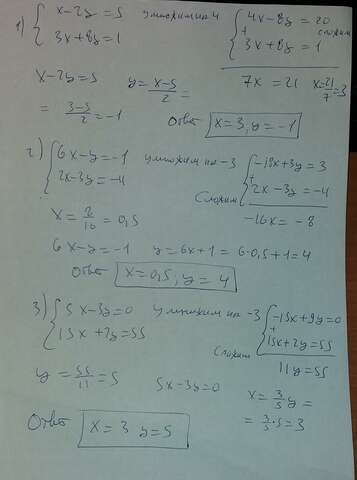 1) { x-2y=5 умножим на 4 { 4x-8y=20
3x+8y=1 + 3x+8y=1 сложим
7x=21 x=21/7=3
x-2y=5 y=(x-5)/2=
= (3-5)/2=-1
Ответ x=3, y=-1
2) { 6x-y=-1 умножим на -3 { -18x+3y=3
2x-3y=-4 + 2x-3y=-4
Сложим -16x=-8
x=8/16=0,5
6x-y=-1 y=6x+1=6·0,5+1=4
Ответ x=0,5, y=4
3) { 5x-3y=0 умножим на -3 { -15x+9y=0
15x+2y=55 + 15x+2y=55
сложим 11y=55
y=55/11=5 5x-3y=0 x=3/5y=
=3/5·5=3
Ответ x=3 y=5